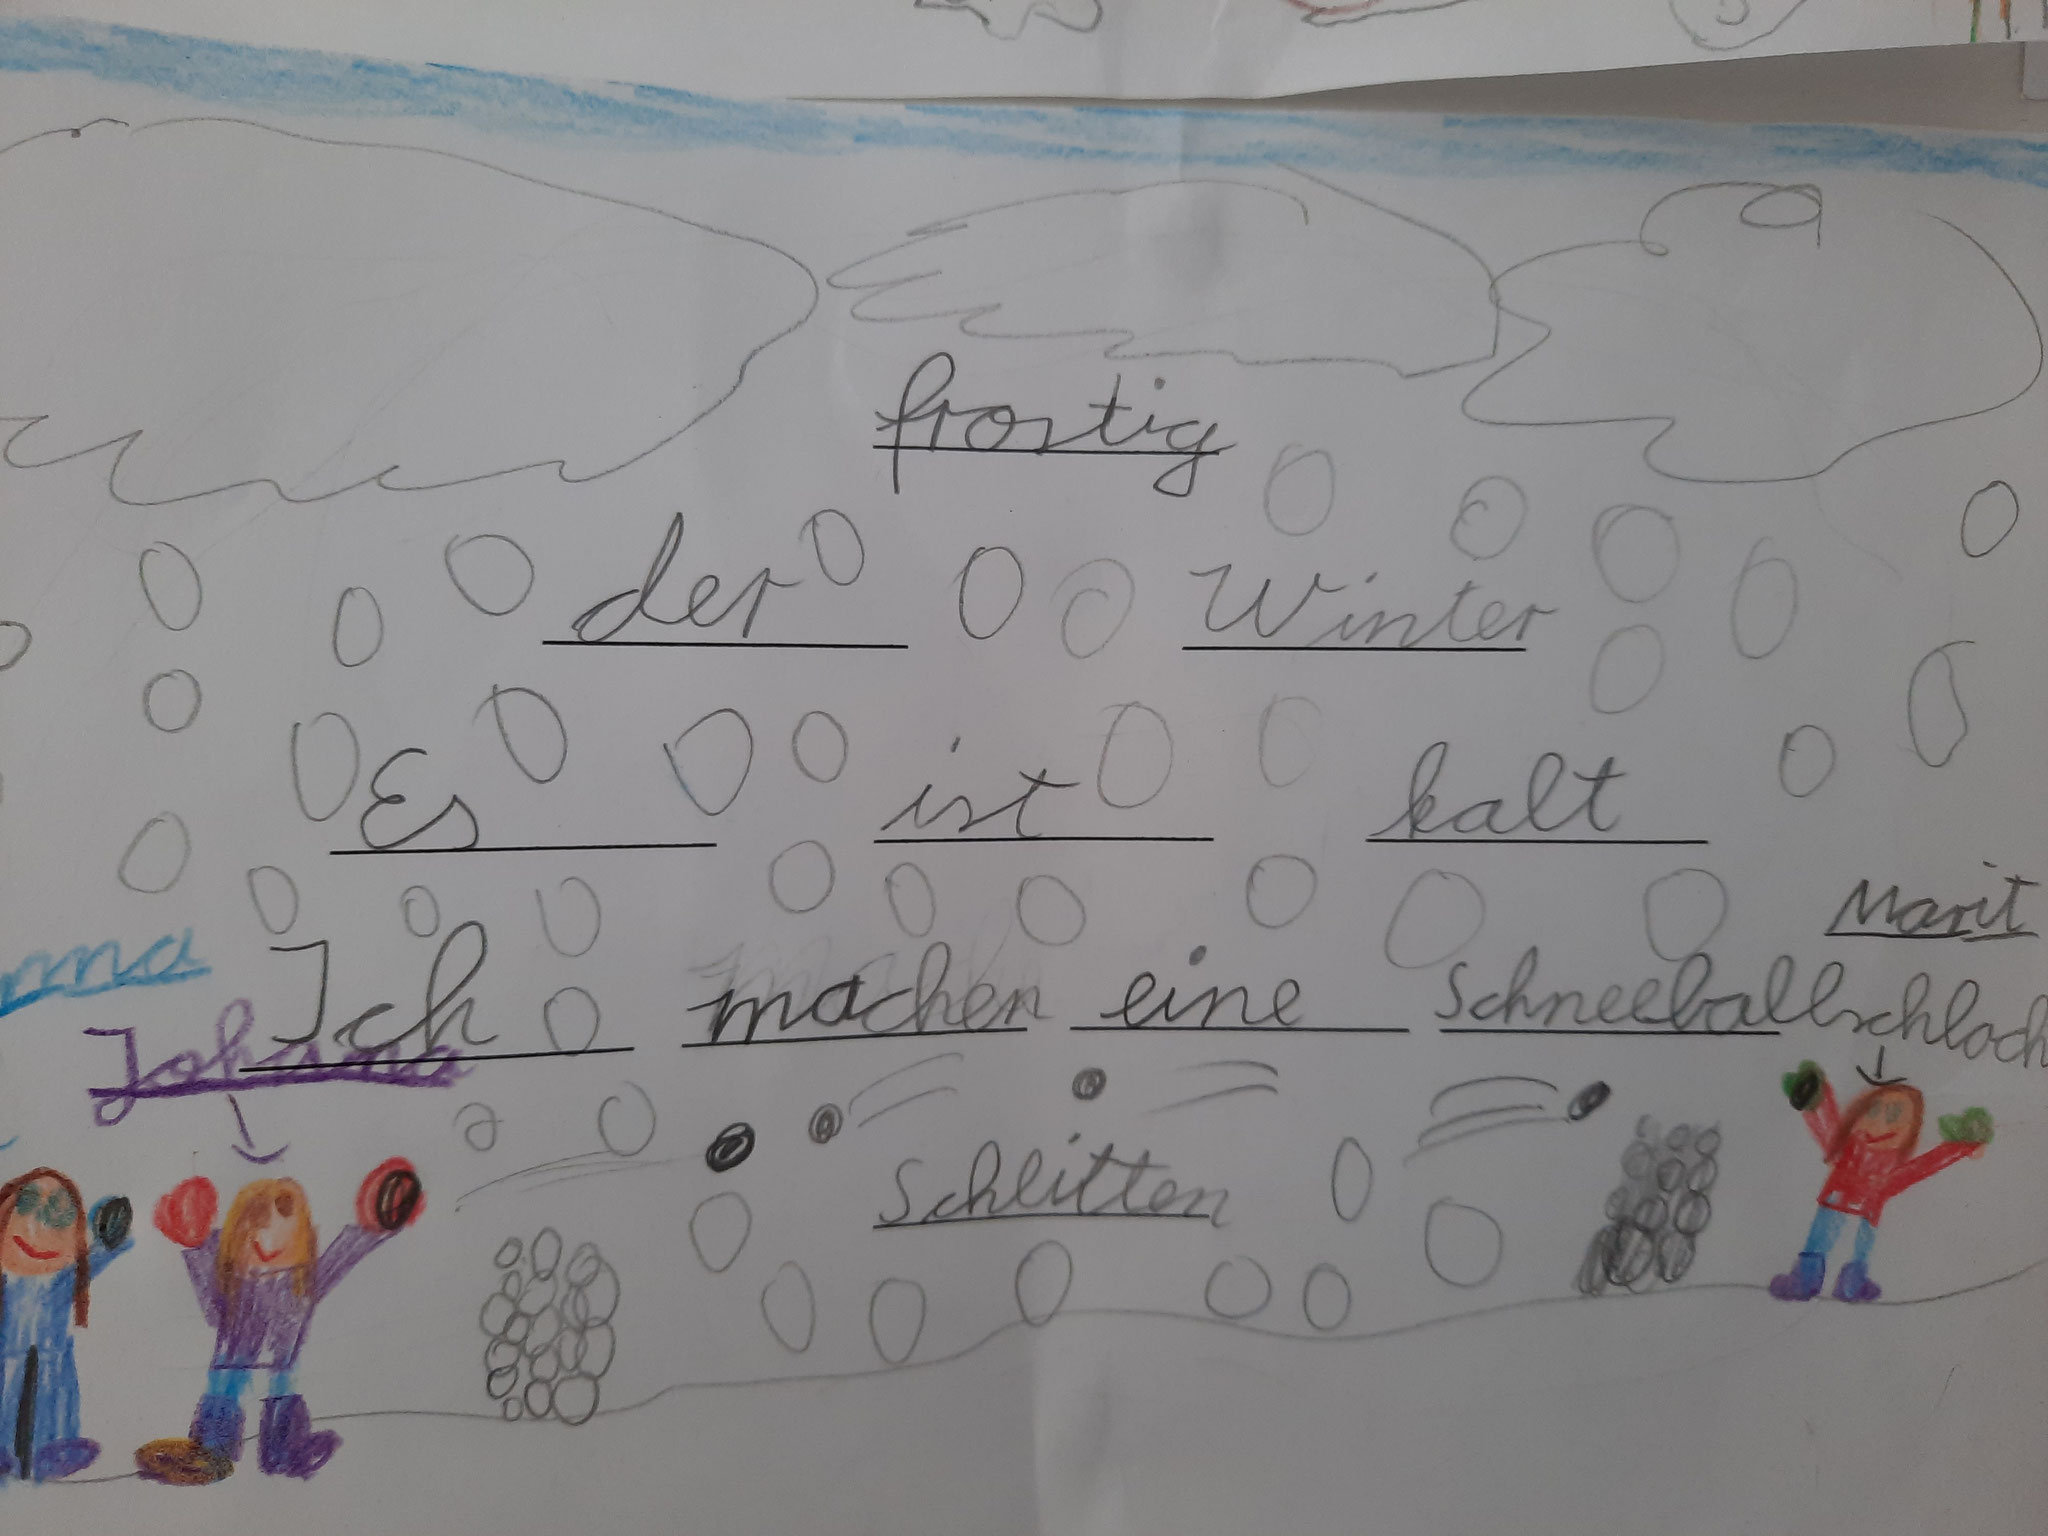 frostig
der Winter
Es ist kalt
Marit
Ich machen eine Schneeballschlach
Johanna
Schlitten